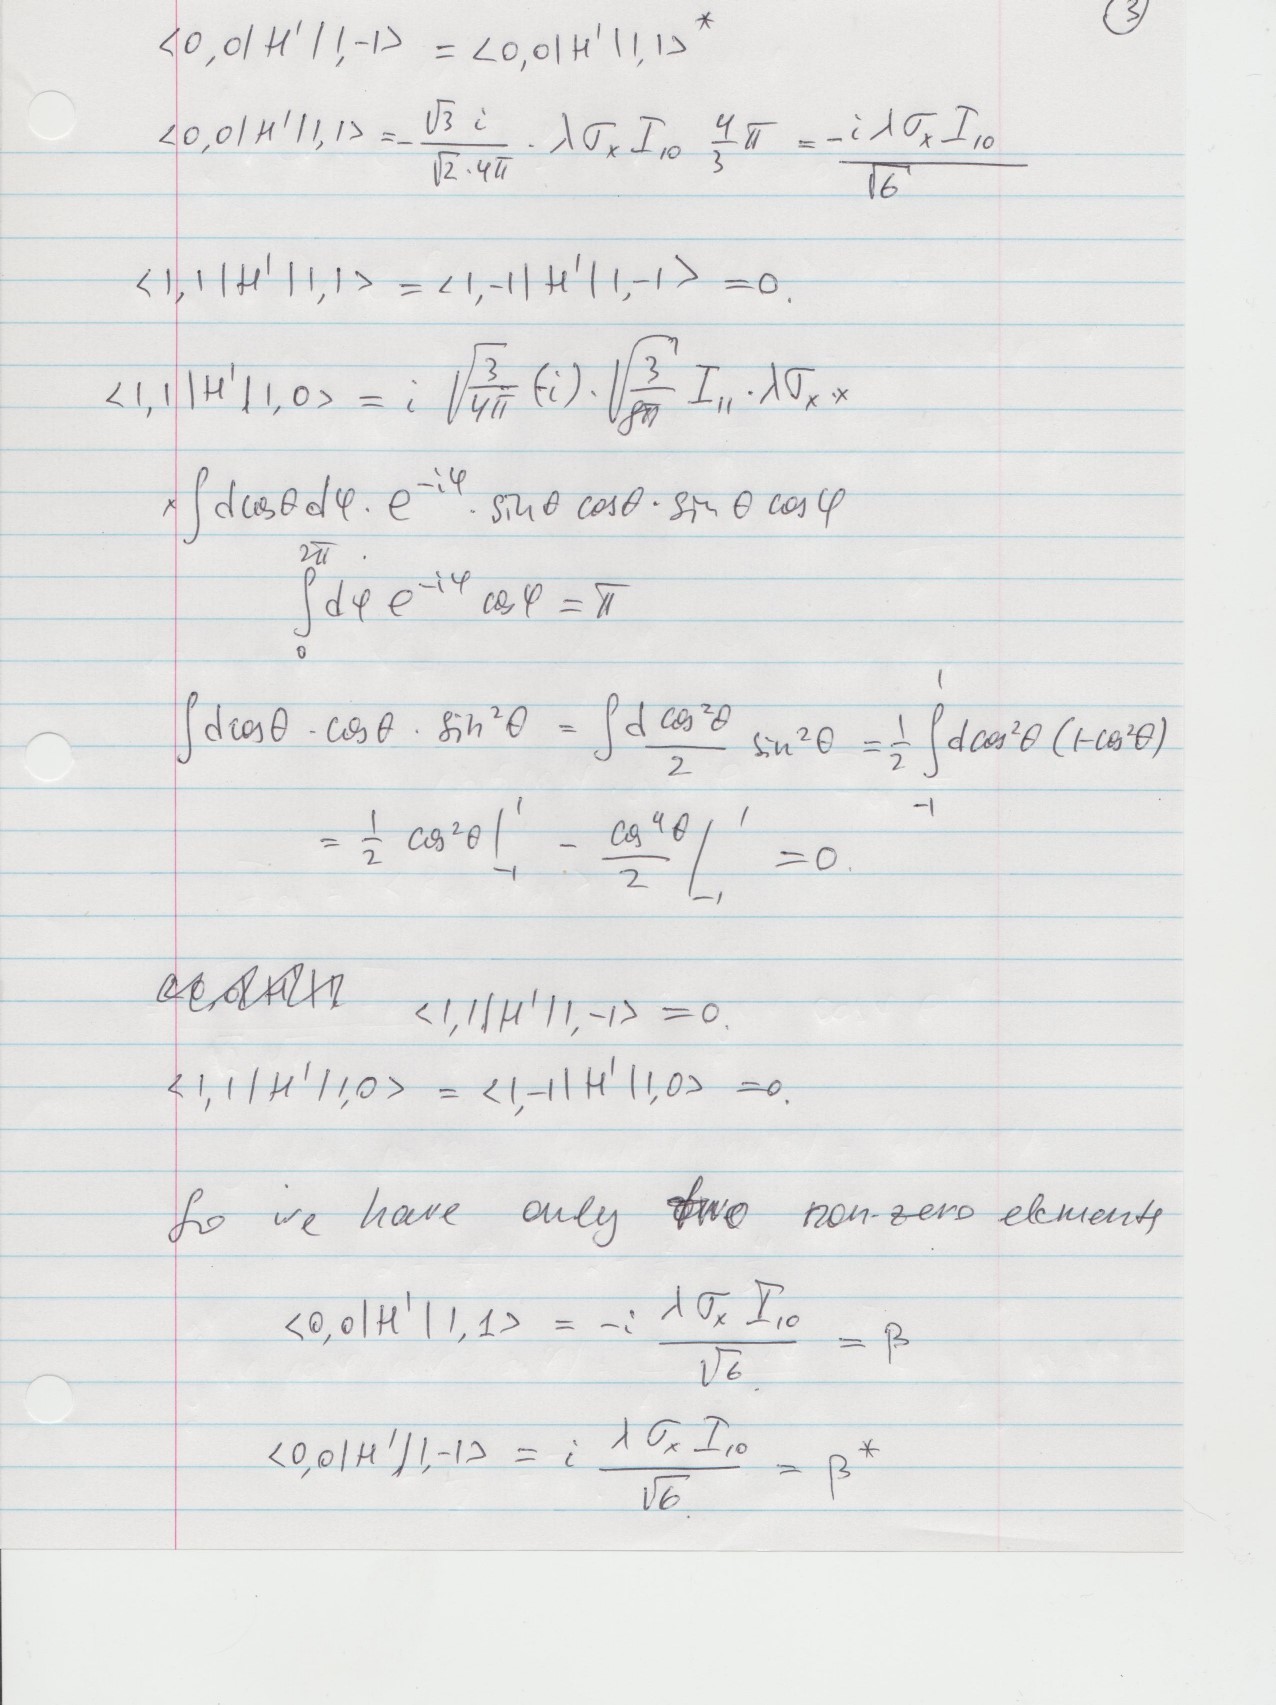 ③
<0,0|H'|1,-1> = <0,0|H'|1,1>*
<0,0|H'|1,1> = - √3 i / √2·4π · λσₓI₁₀ 4/3 π = -iλσₓI₁₀ / √6
<1,1|H'|1,1> = <1,-1|H'|1,-1> = 0.
<1,1|H'|1,0> = i √(3/4π) (-i)·√(3/8π) I₁₁·λσₓ ×
× ∫dcosθdφ·e^(-iφ)·sinθ cosθ·sinθ cosφ
∫₀^2π dφ e^(-iφ) cosφ = π
∫dcosθ·cosθ·sin²θ = ∫d cos²θ/2 sin²θ = 1/2 ∫₋₁^1 dcos²θ (1-cos²θ)
= 1/2 cos²θ|₋₁^1 - cos⁴θ/2 |₋₁^1 = 0.
<1,1|H'|1,-1> = 0.
<1,1|H'|1,0> = <1,-1|H'|1,0> = 0.
So we have only two non-zero elements
<0,0|H'|1,1> = -i λσₓI₁₀ / √6 = β
<0,0|H'|1,-1> = i λσₓI₁₀ / √6. = β*